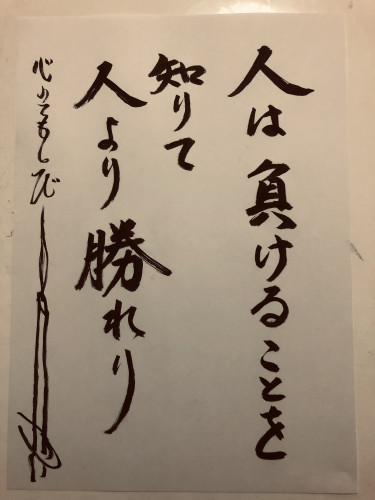 人は負けることを
知りて
人より勝れり
心のともしび